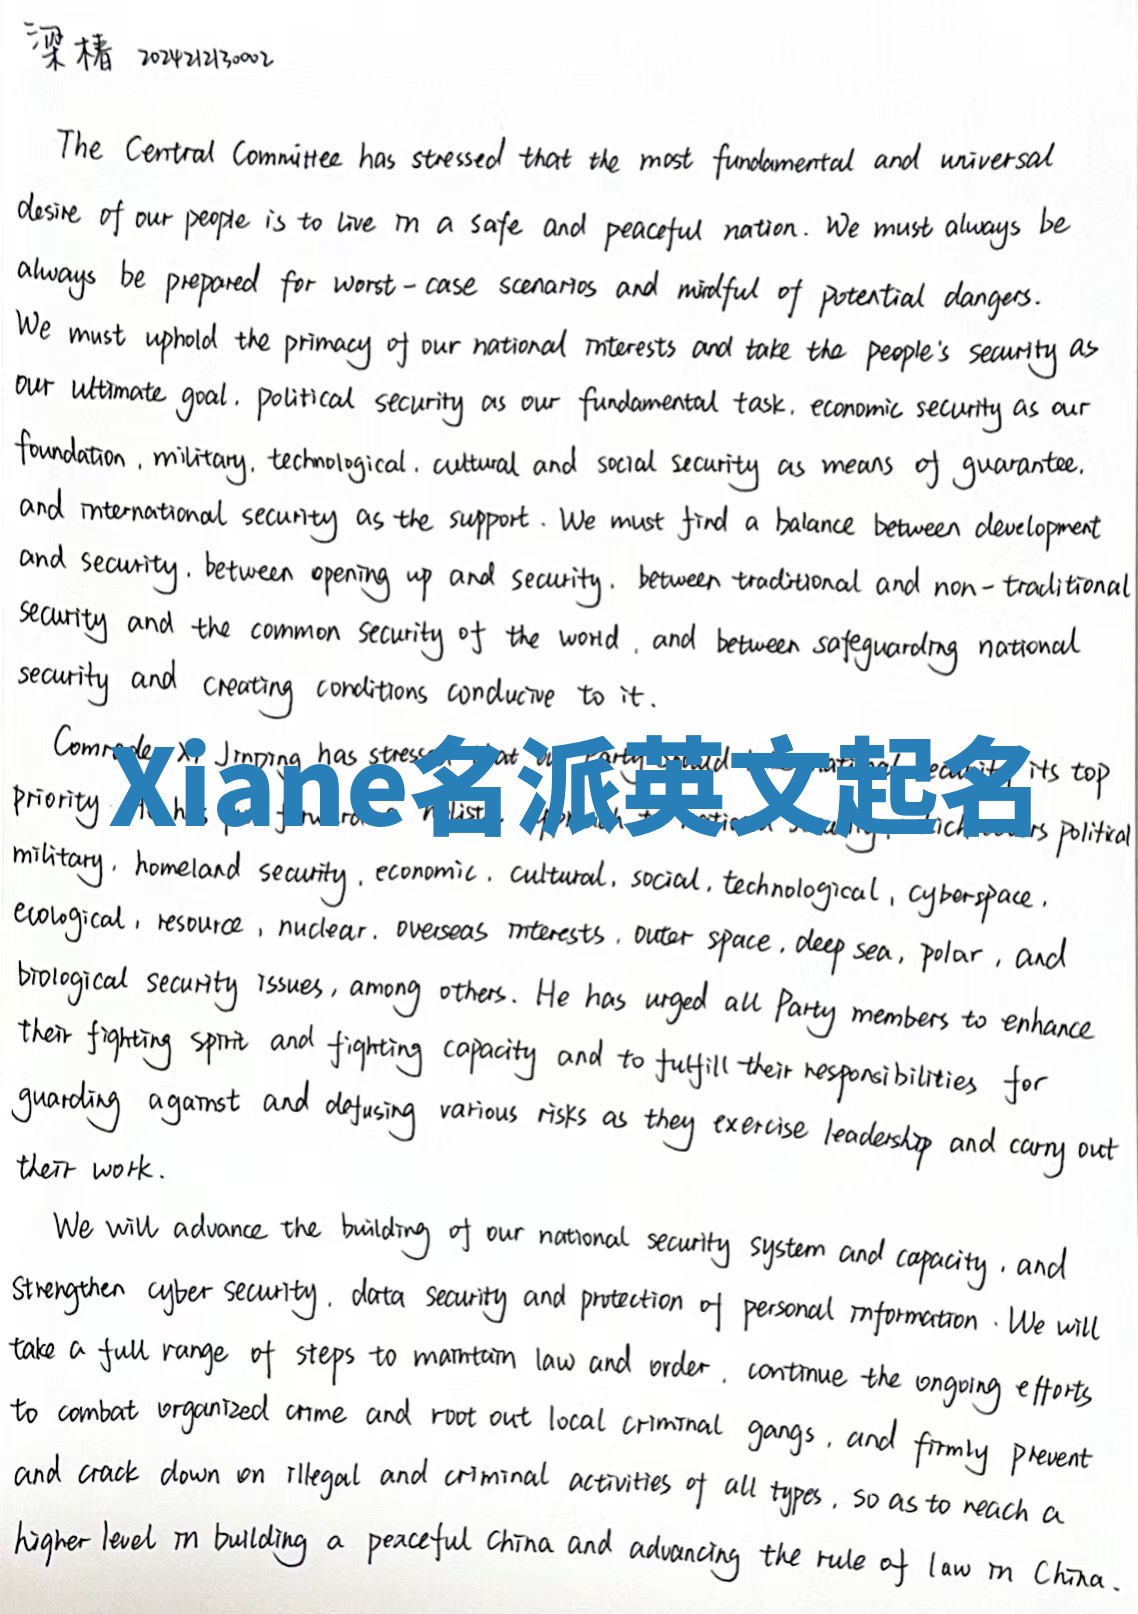 梁椿 2024212130002
The Central Committee has stressed that the most fundamental and universal
desire of our people is to live in a safe and peaceful nation. We must always be
always be prepared for worst-case scenarios and mindful of potential dangers.
We must uphold the primacy of our national interests and take the people's security as
our ultimate goal, political security as our fundamental task, economic security as our
foundation, military, technological, cultural and social security as means of guarantee,
and international security as the support. We must find a balance between development
and security, between opening up and security, between traditional and non-traditional
security and the common security of the world, and between safeguarding national
security and creating conditions conducive to it.
Comrade Xi Jinping has stressed that our Party national security its top
Xiane名派英文起名
priority political
military, homeland security, economic, cultural, social, technological, cyberspace,
ecological, resource, nuclear, overseas interests, outer space, deep sea, polar, and
biological security issues, among others. He has urged all Party members to enhance
their fighting spirit and fighting capacity and to fulfill their responsibilities for
guarding against and defusing various risks as they exercise leadership and carry out
their work.
We will advance the building of our national security system and capacity, and
strengthen cyber security, data security and protection of personal information. We will
take a full range of steps to maintain law and order, continue the ongoing efforts
to combat organized crime and root out local criminal gangs, and firmly prevent
and crack down on illegal and criminal activities of all types, so as to reach a
higher level in building a peaceful China and advancing the rule of law in China.